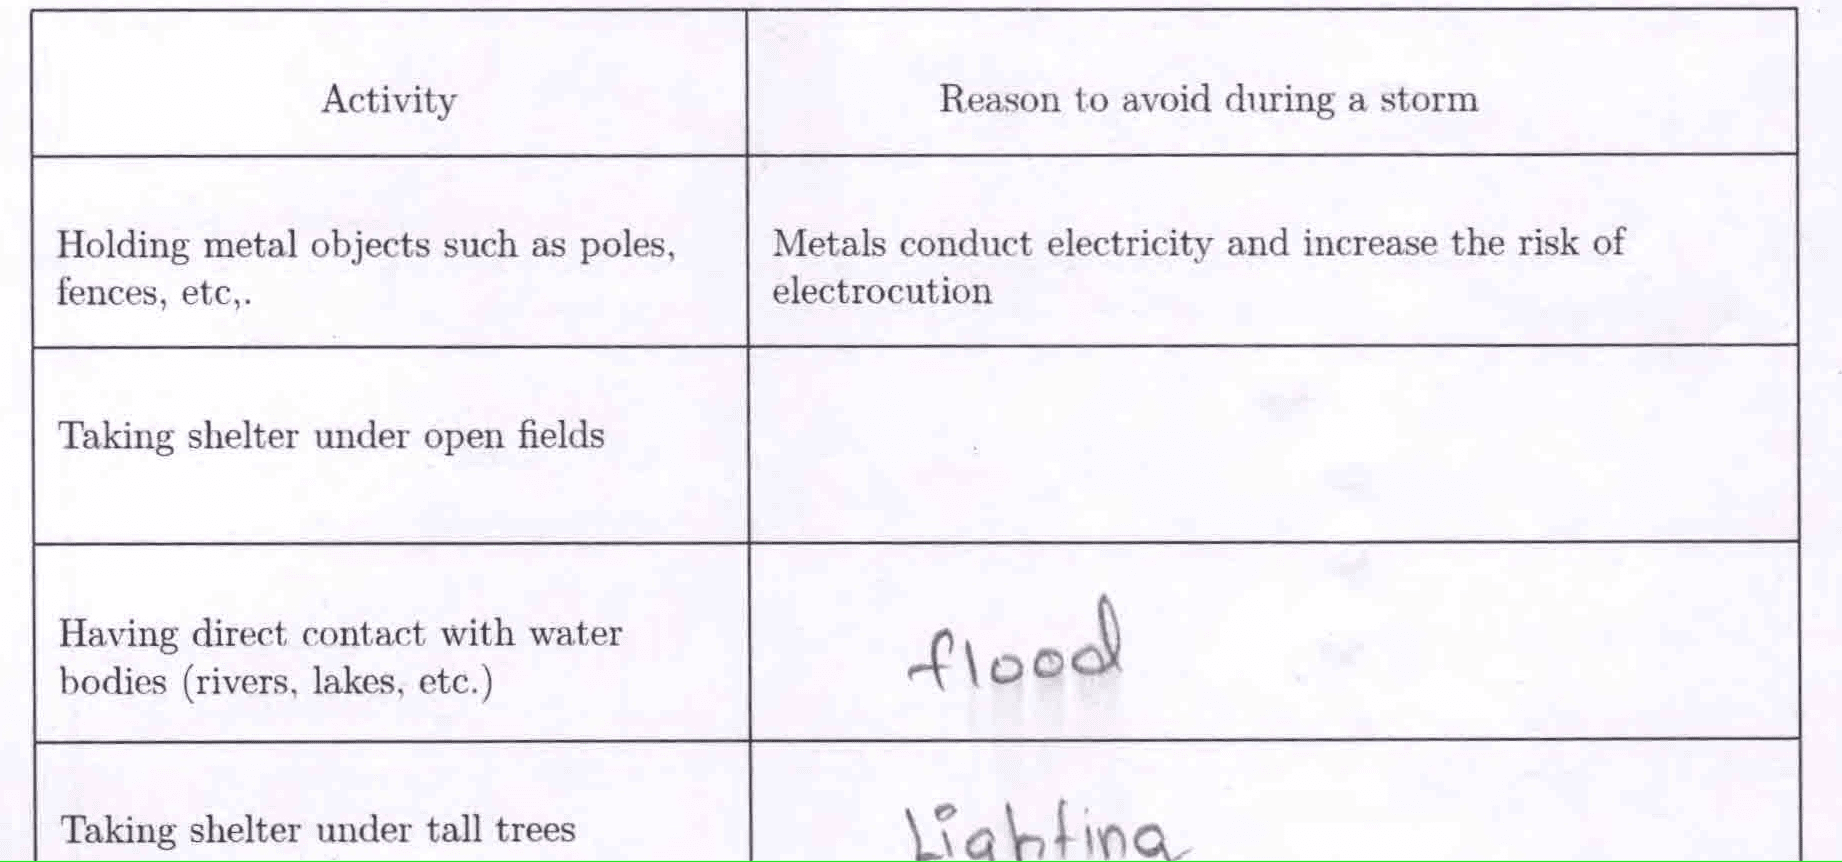 Activity
Reason to avoid during a storm
Holding metal objects such as poles,
fences, etc,.
Metals conduct electricity and increase the risk of
electrocution
Taking shelter under open fields
Having direct contact with water
bodies (rivers, lakes, etc.)
flood
Taking shelter under tall trees
Lighting